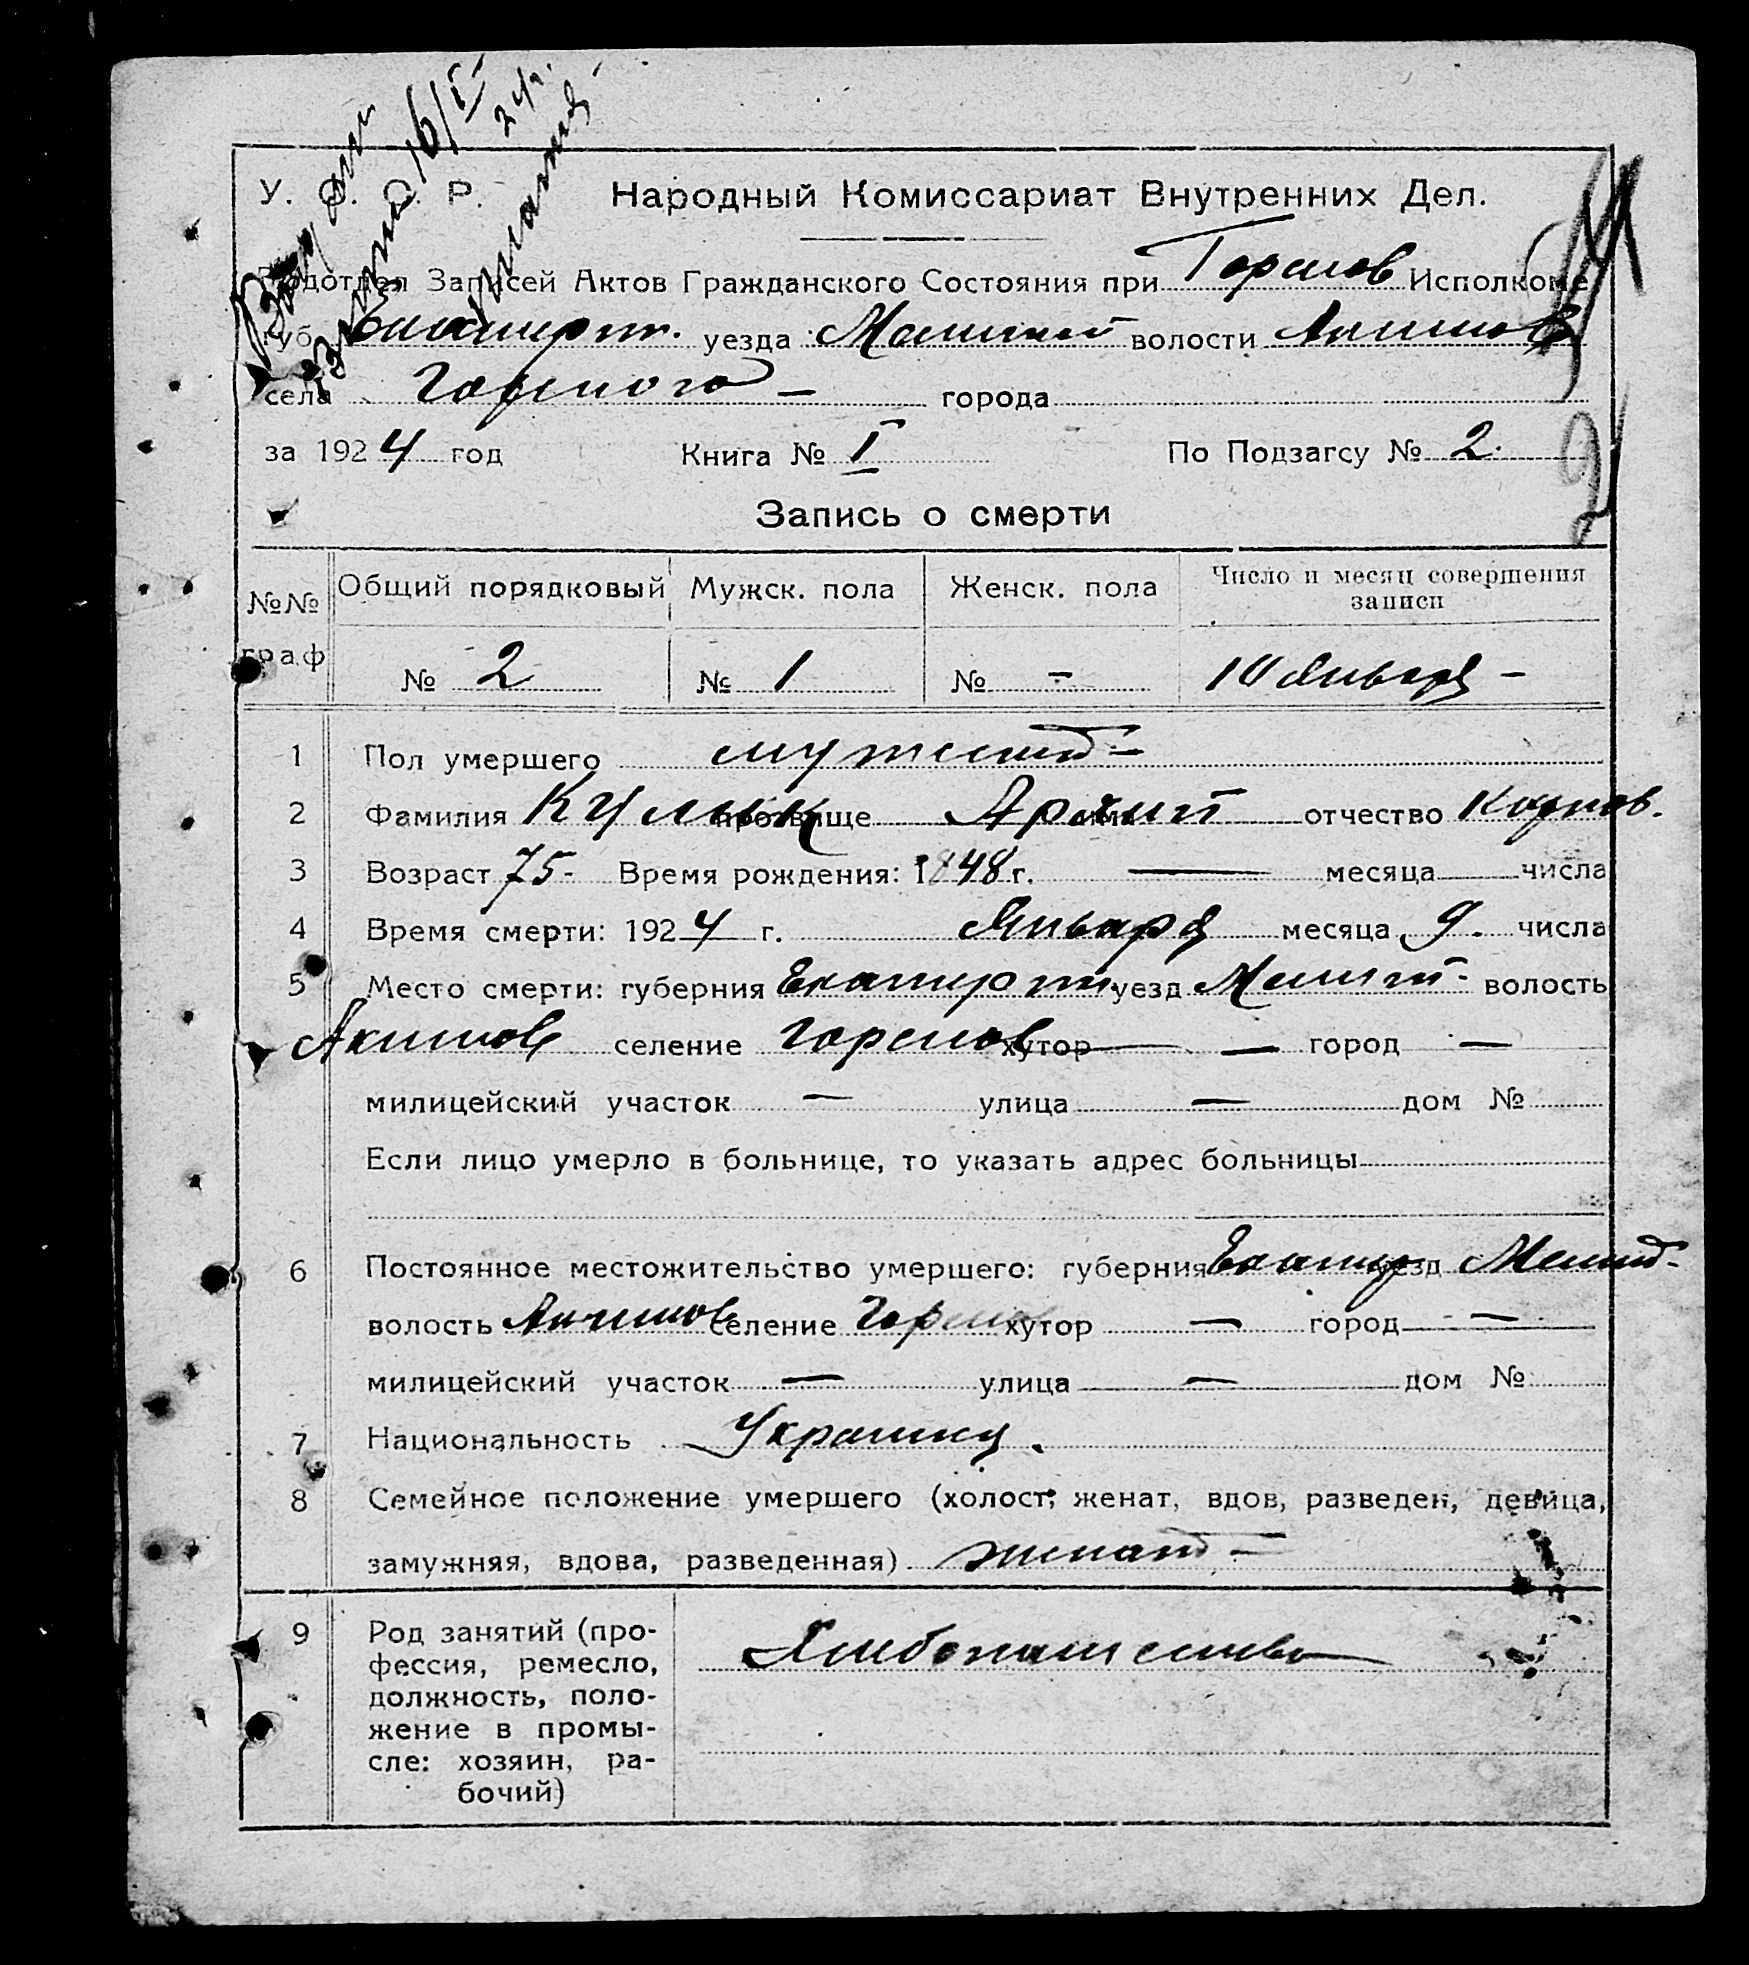 У. С. С. Р. Народный Комиссариат Внутренних Дел.
Подотдел Записей Актов Гражданского Состояния при Горсков Исполкоме
Губ. Екатерт. уезда Мелит волости Акимов
села Горского — города
за 1924 год Книга № I По Подзагсу № 2.
Запись о смерти
№№ граф Общий порядковый Мужск. пола Женск. пола Число и месяц совершения записи
№ 2 № 1 № — 10 Января —
1 Пол умершего мужской —
2 Фамилия Кулык прозвище Архип имя отчество
3 Возраст 75 - Время рождения: 1848 г. — месяца числа
4 Время смерти: 1924 г. Января месяца 9. числа
5 Место смерти: губерния Екатерт. уезд Мелит - волость
Акимов селение Горсков хутор — город —
милицейский участок — улица — дом №
Если лицо умерло в больнице, то указать адрес больницы
6 Постоянное местожительство умершего: губерния Екатер уезд Мелит -
волость Акимов селение Горсков хутор — город —
милицейский участок — улица — дом №
7 Национальность Украинец.
8 Семейное положение умершего (холост, женат, вдов, разведен, девица,
замужняя, вдова, разведенная) женат —
9 Род занятий (про-
фессия, ремесло,
должность, поло-
жение в промы-
сле: хозяин, ра-
бочий)
Хлебопашество